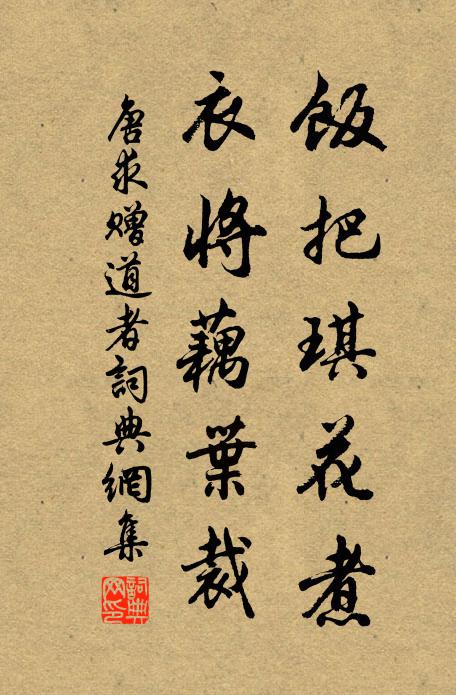 飯把琪花煮
衣將藕葉裁
唐求贈道者詞典網集
詞典網印